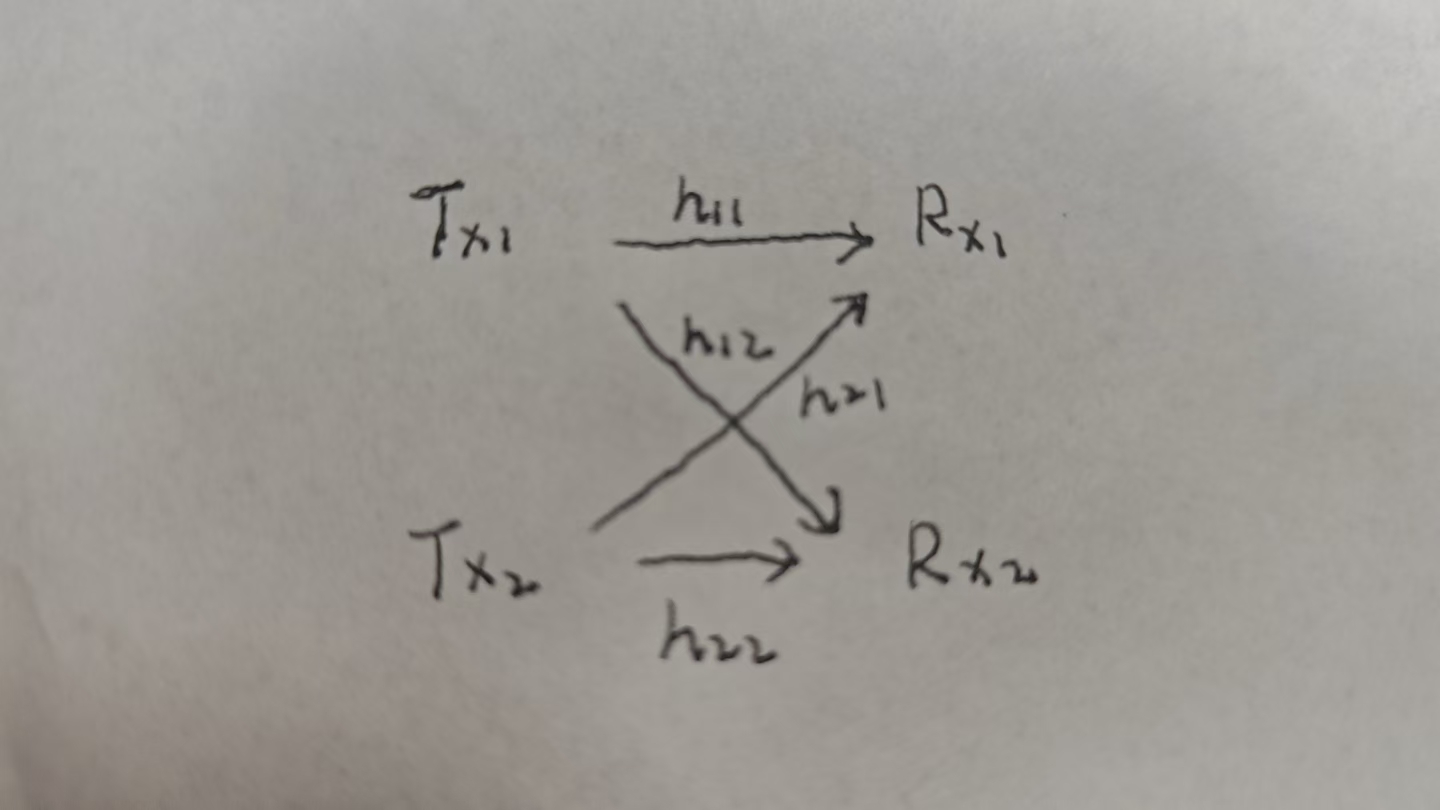 Tx1 h11 Rx1
h12
h21
Tx2 Rx2
h22